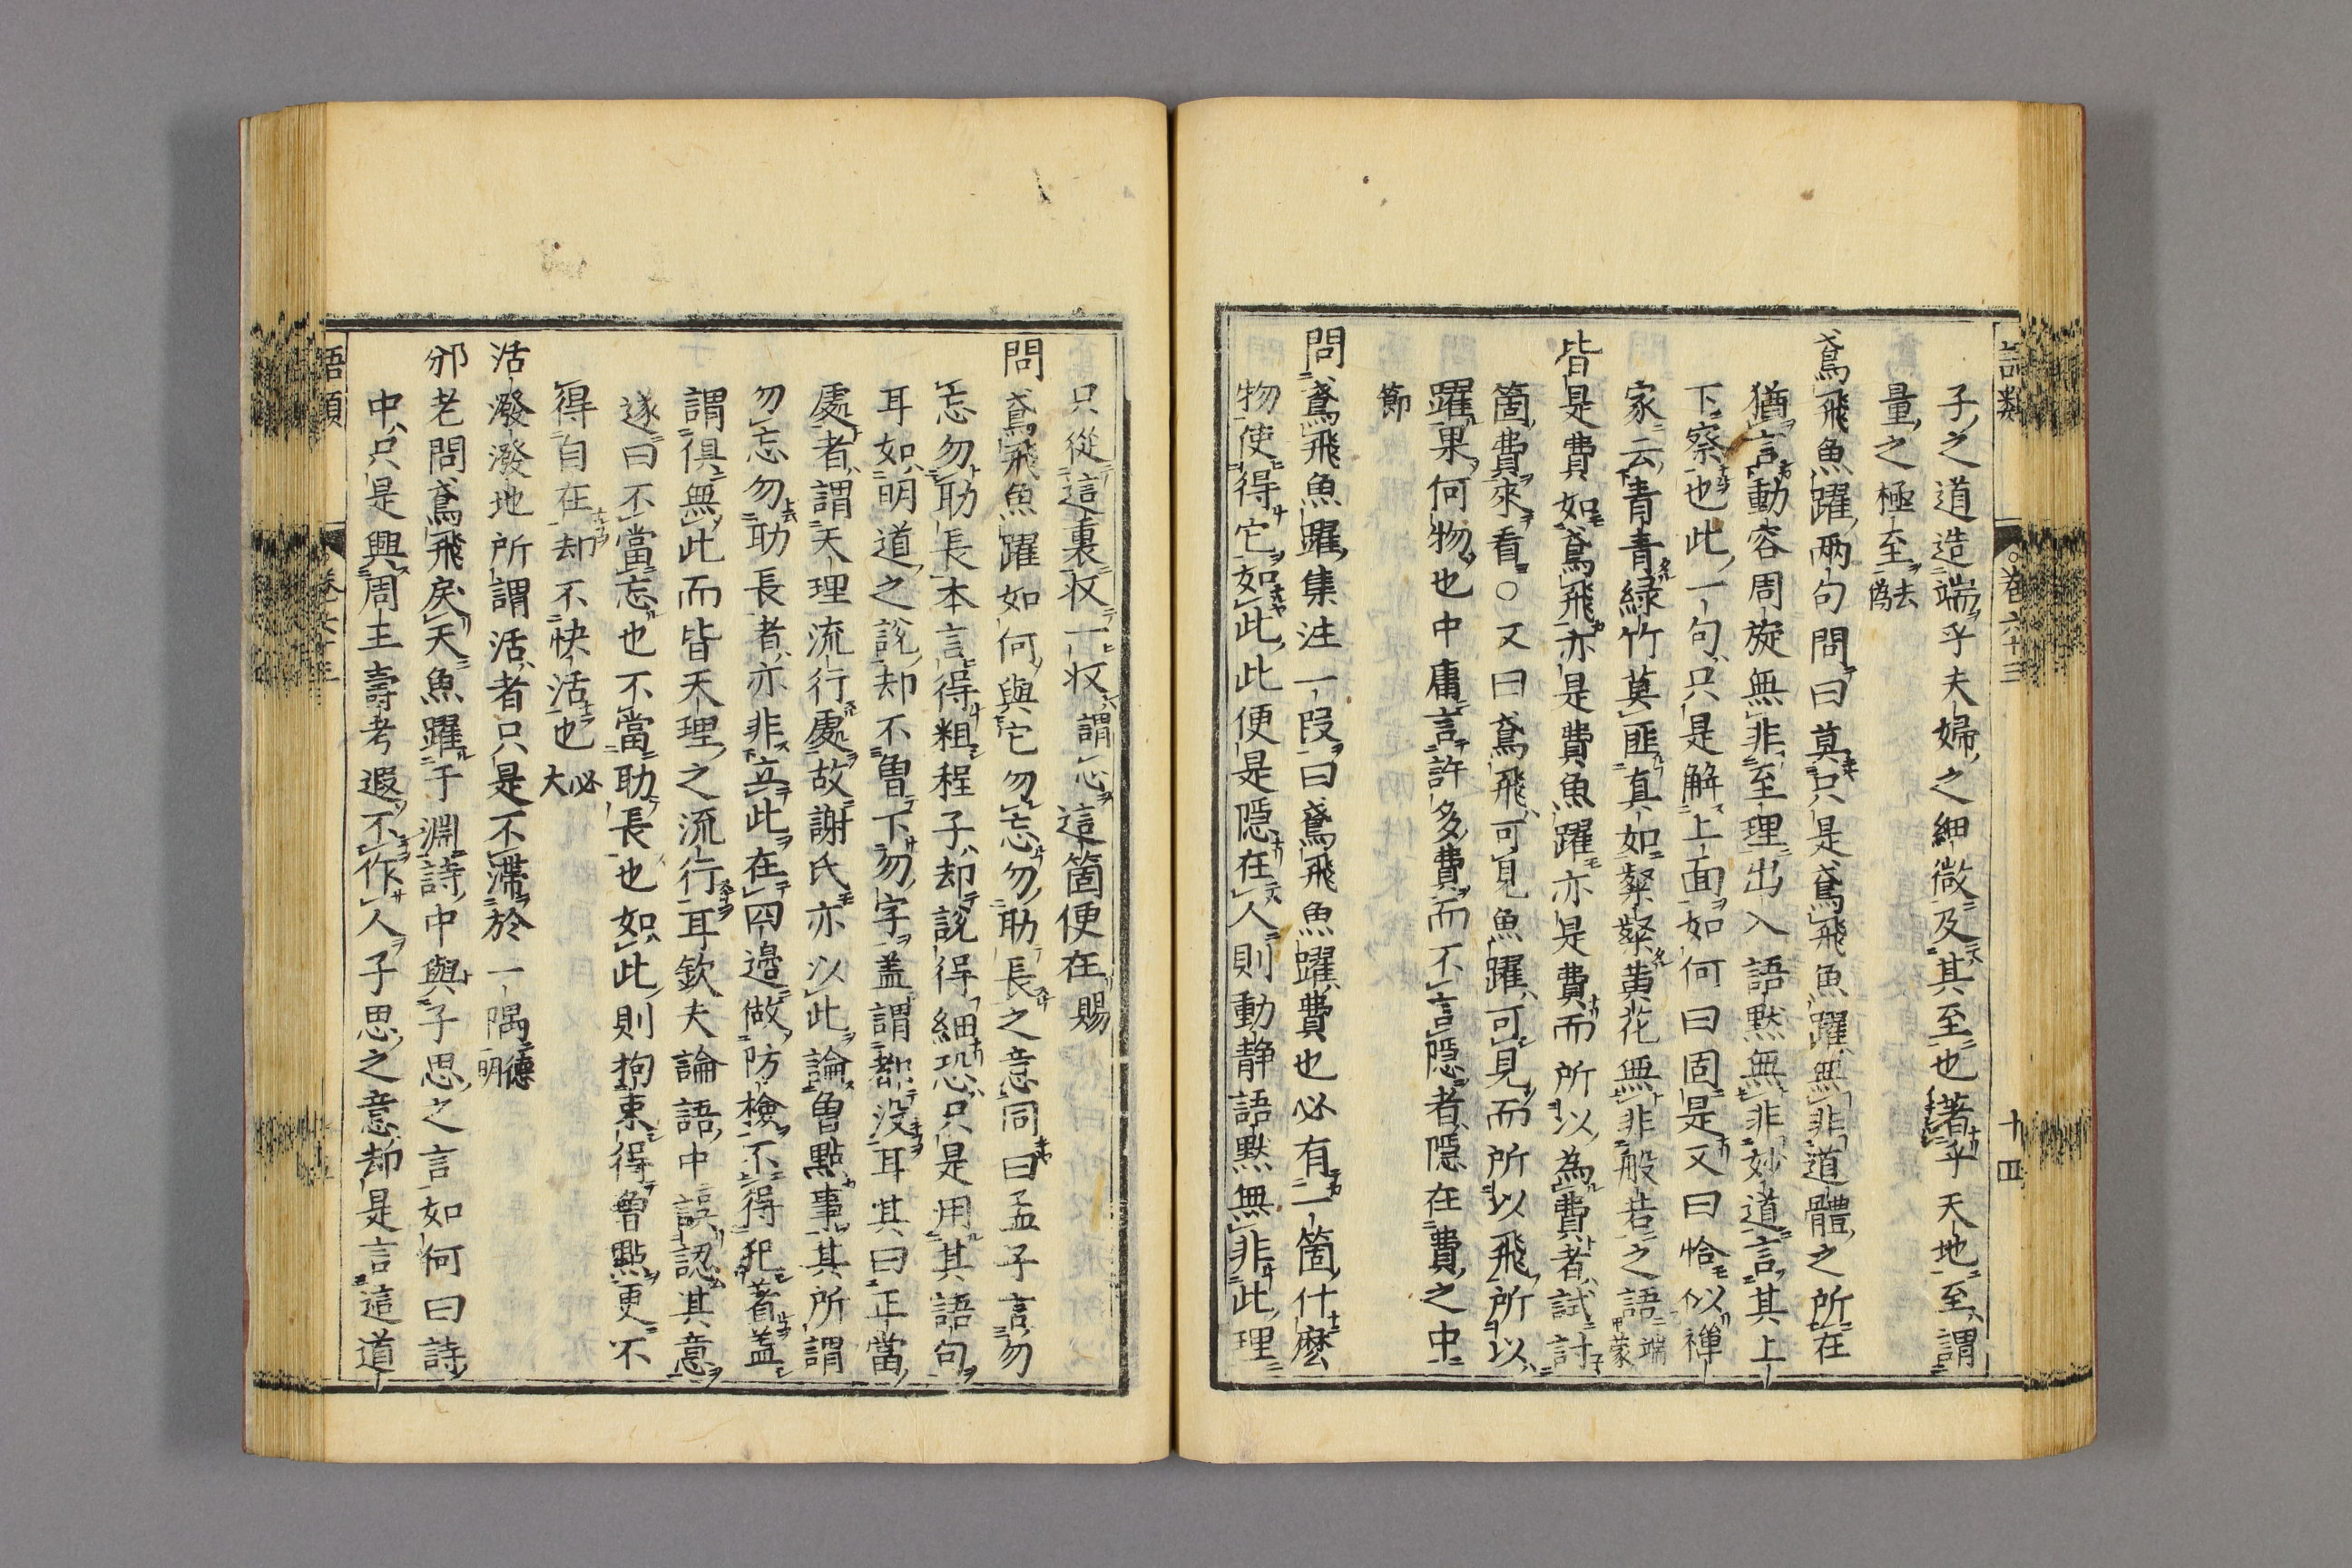 語類　卷六十三　十四
子之道造端乎夫婦之細微及其至也著乎天地至謂
量之極至去偽
鳶飛魚躍兩句問曰莫只是鳶飛魚躍無非道體之所在
猶言動容周旋無非至理出入語默無非妙道言其上
下察也此一句只是解上面如何曰固是又曰恰似禪
家云青青綠竹莫匪真如粲粲黃花無非般若之語端蒙
皆是費如鳶飛亦是費魚躍亦是費而所以為費者試討
箇費來看○又曰鳶飛可見魚躍可見而所以飛所以
躍果何物也中庸言許多費而不言隱者隱在費之中
節
問鳶飛魚躍集注一段曰鳶飛魚躍費也必有一箇什麼
物使得它如此此便是隱在人則動靜語默無非此理
只從這裏收一收謂心這箇便在賜
問鳶飛魚躍如何與它勿忘勿助長之意同曰孟子言勿
忘勿助長本言得粗程子却說得細恐只是用其語句
耳如明道之說却不曾下勿字蓋謂都沒耳其曰正當
處者謂天理流行處故謝氏亦以此論曾點事其所謂
勿忘勿助長者亦非立此在四邊做防檢不得犯著蓋
謂俱無此而皆天理之流行耳欽夫論語中誤認其意
遂曰不當忘也不當助長也如此則拘束得曾點更不
得自在却不快活也必大
活潑潑地所謂活者只是不滯於一隅德明
邠老問鳶飛戾天魚躍于淵詩中與子思之言如何曰詩
中只是興周王壽考遐不作人子思之意却是言這道
語類　卷六十三